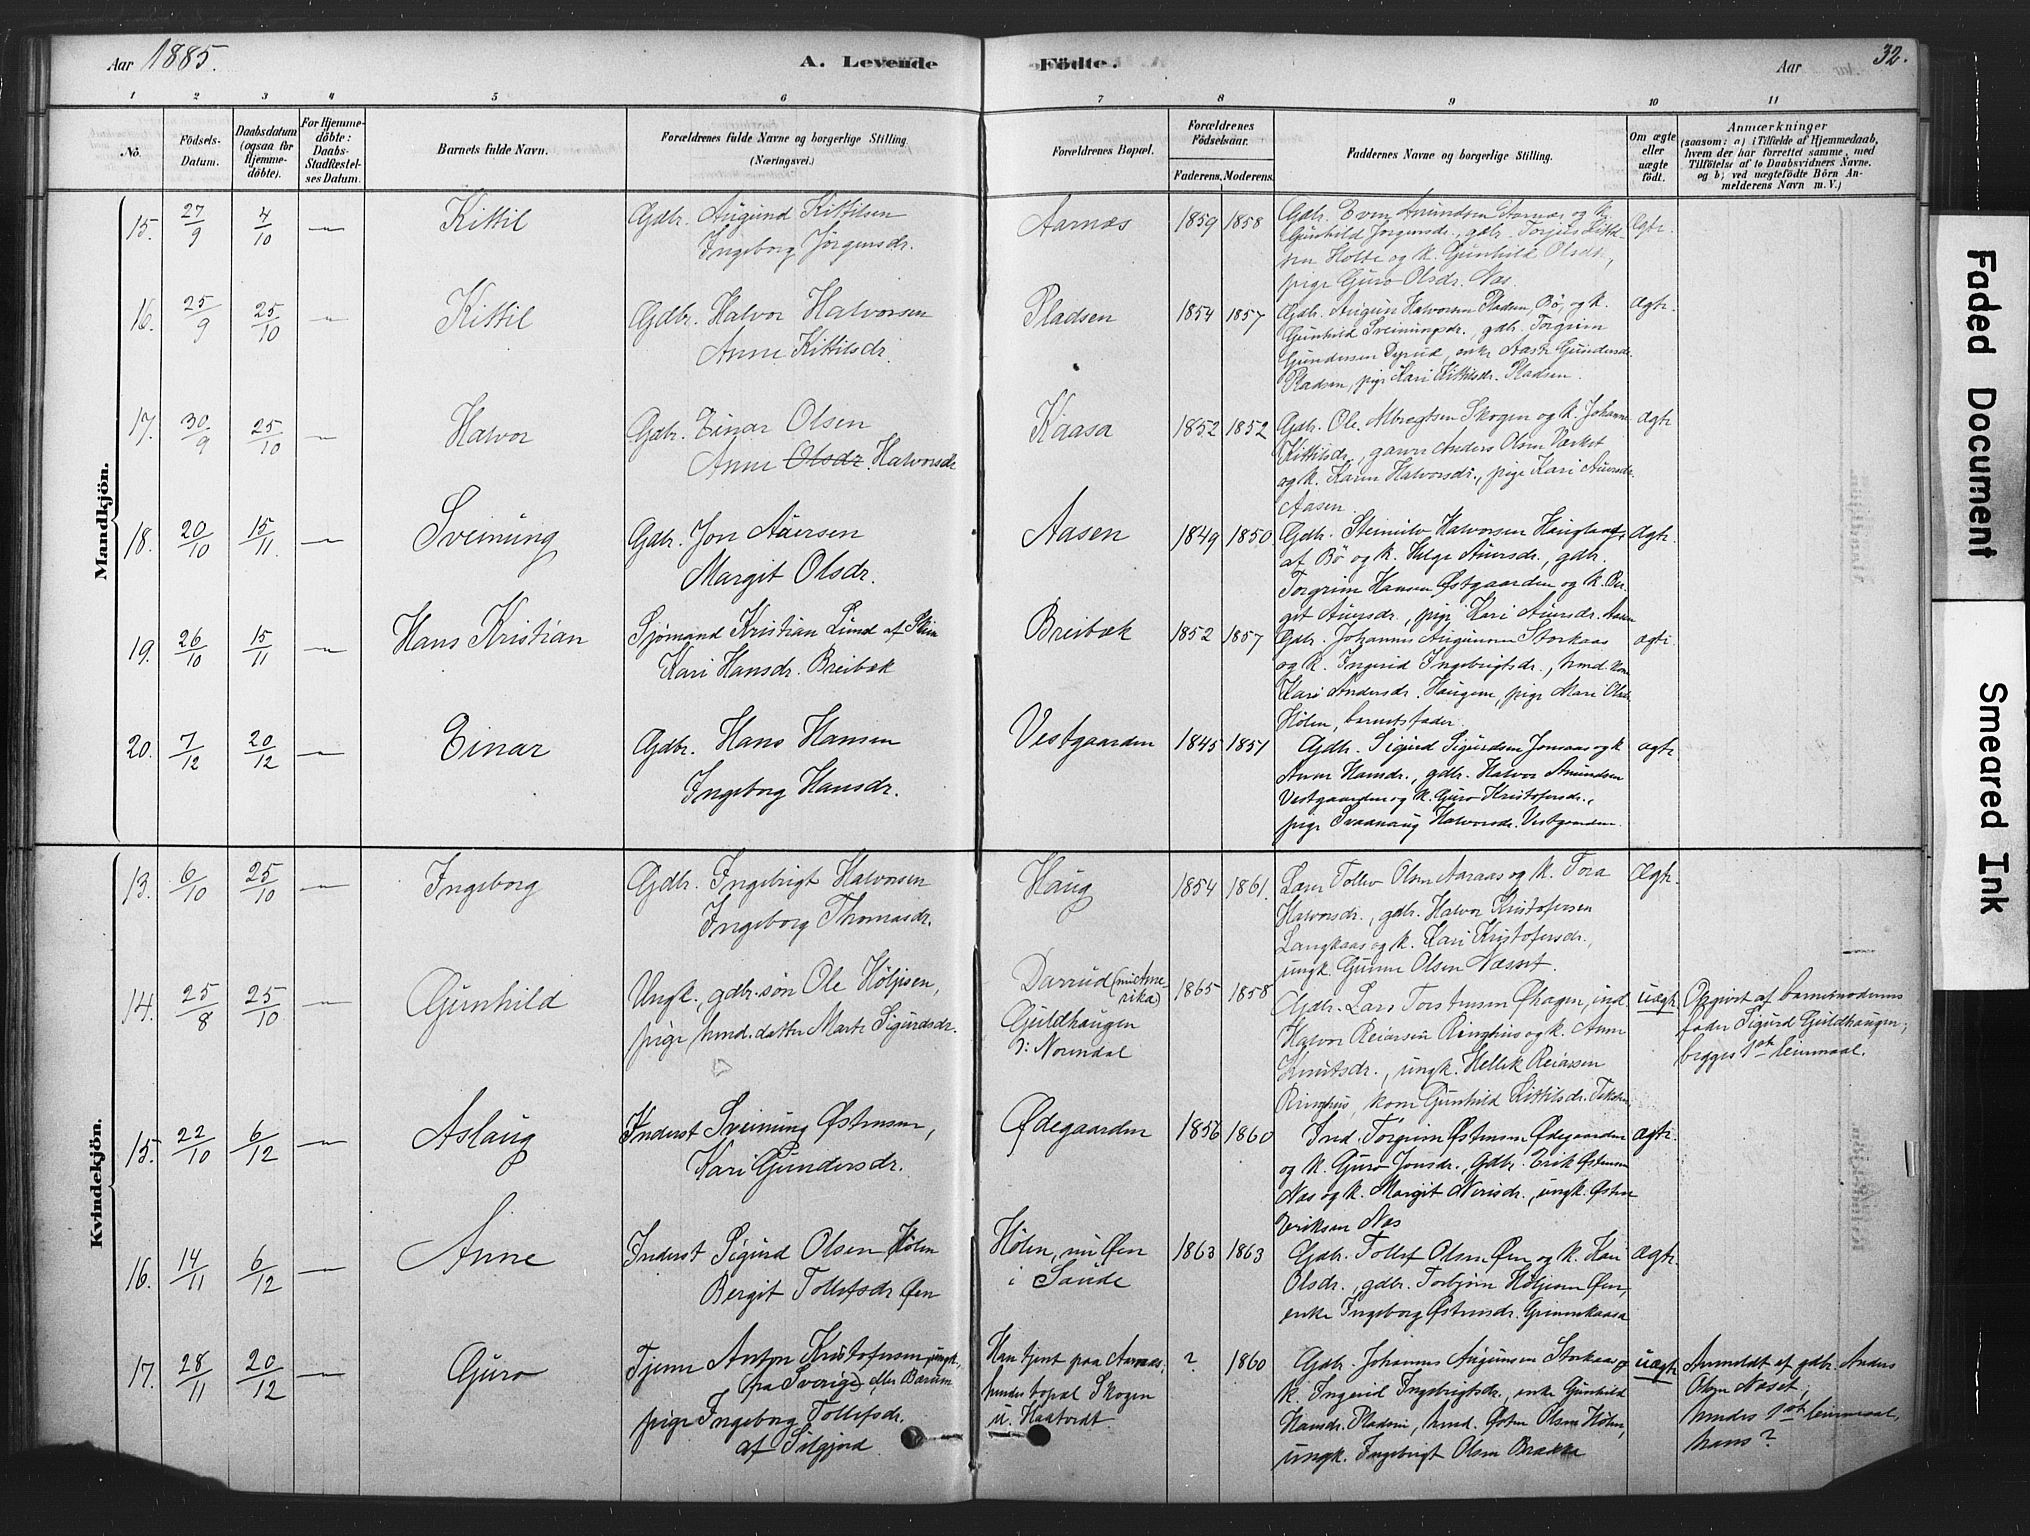 Aar 1885. A. Levende Födte. Aar 32.
1 2 3 4 5 6 7 8 9 10 11
No. Födsels-Datum. Daabsdatum (ogsaa for Hjemme-döbte). For Hjemme-döbte: Daabs-Stadfæstel-ses Datum. Barnets fulde Navn. Forældrenes fulde Navne og borgerlige Stilling (Næringsvei.) Forældrenes Bopæl. Forældrenes Födselsaar. Faderens. Moderens. Faddernes Navne og borgerlige Stilling. Om ægte eller uægte födt. Anmærkninger (saasom: a) i Tilfælde af Hjemmedaab, hvem der har forrettet samme, med Tilföielse af to Daabsvidners Navne. og b) ved uægtefödte Börn Anmelderens Navn m. V.)
Mandkjön.
15. 27/9 4/10 — Kittil Gdbr. Augund Kittilsen
Ingeborg Jørgensdr. Aarnæs 1859 1858 Gdbr. Even Amundsen Aarnæs og k.
Gunhild Jørgensdr., gdbr. Torjus Kittil-
sen Holte og k. Gunhild Olsdr.,
pige Guro Olsdr. Næs. Ægte.
16. 25/9 25/10 — Kittil Gdbr. Halvor Halvorsen
Anne Kittilsdr. Pladsen 1854 1857 Gdbr. Augun Halvorsen Pladsen, Bø, og k.
Gunhild Sveinungsdr., gdb. Torgrim
Gundersen Dyrud, enke Aaste Gundersdr.
Pladsen, pige Kari Kittilsdr. Pladsen. ægte.
17. 30/9 25/10 — Halvor Gdbr. Einar Olsen
Anne Olsdr. Halvorsdr. Kaasa 1852 1852 Gdbr. Ole Albregtsen Skogen og k. Johanne
Kittilsdr., Anders Olsen Værket
og k. Karen Halvorsdr., pige Kari Auversdr.
Aasen. ægte
18. 20/10 15/11. — Sveinung Gdb. Jon Auversen
Margit Olsdr. Aasen 1849 1850 Gdbr. Steinulv Halvorsen Haugland,
af Bø og k. Helge Auversdr., gdbr.
Torgrim Hansen Østgaarden og k. Ber-
git Auversdr., pige Kari Auversdr. Aasen Ægte.
19. 26/10 15/11 — Hans Kristian Sjømand Kristian Lund af Skien
Kari Hansdr. Breibæk Breibæk 1852 1857 Gdb. Johannes Augunsen Storkaas
og k. Ingerid Ingebrigtsdr., hmd. kone
Kari Andersdr. Haugen, pige Mari Olsdr.
Hølen, barnets fader. ægte
20. 7/12 20/12 — Einar Gdbr. Hans Hansen
Ingeborg Hansdr. Vestgaarden 1845 1851 Gdbr. Sigurd Sigurdsen Jonsaas og k.
Anne Hansdr., gdbr. Halvor Amundsen
Vestgaarden og k. Guro Kristofersdr.,
pige Svanaug Halvorsdr. Vestgaarden. ægte
Kvindekjön.
13. 6/10 25/10 — Ingeborg Gdbr. Ingebrigt Halvorsen
Ingeborg Thomasdr. Haug 1854 1861. Tollev Olsen Aaraas og k. Tora
Halvorsdr., gdbr. Halvor Kristofersen
Langkaas og k. Kari Kristofersdr.,
ungk. Gunne Olsen Næsset. Ægte.
14. 25/8 25/10 — Gunhild Ungk., gdbr.søn Ole Høljesen,
pige hmd. datter Marte Sigurdsdr. Darrud (nu i Ame-
rika)
Guldhaugen
i Norendal 1865 1858 Gdbr. Lars Torstensen Øhagen, ind.
Halvor Reiarsen Ringhus og k. Anne
Knutsdr., ungk. Hellik Reiarsen
Ringhus, kone Gunhild Kittilsdr. uægte Opgivet af barnemoderens
fader Sigurd Guldhaugen;
begges 1ste leiermaal.
15. 22/10 6/12 — Aslaug Inderst Sveinung Østensen,
Kari Gundersdr. Ødegaarden 1856 1860 Ind. Torgrim Østensen Ødegaarden
og k. Guro Jonsdr., Gdbr. Erik Østensen
Næs og k. Margit Nirisdr., ungk. Østen
Eriksen Næs ægte.
16. 14/11 6/12 — Anne Inderst Sigurd Olsen Hølen
Bergit Tollefsdr. Øen Hølen, nu Øen
i Saude 1863 1863 Gdbr. Tollef Olsen Øen og k. Kari
Olsdr., gdbr. Torbjørn Høljesen Øen,
enke Ingeborg Østensdr. Grimmekaasa ægte.
17. 28/11 20/12 — Guro Tjener Anton Kristofersen, ungk.,
fra Sverige eller Bærum
pige Ingeborg Tollefsdr.
af Silgjord. Han tjent paa Aarnæs,
hendes bopæl Skogen
u. Haatvedt ? 1860 Gdbr. Johannes Augunsen Storkaas og
k. Ingerid Ingebrigtsdr., enke Gunhild
Hansdr. Pladsen, hmd. Østen Olsen Hølen,
ungk. Ingebrigt Olsen Brække uægte Anmeldt af gdbr. Anders
Olsen Næset;
hendes 1ste leiermaal,
hans?
Faded Document
Smeared Ink